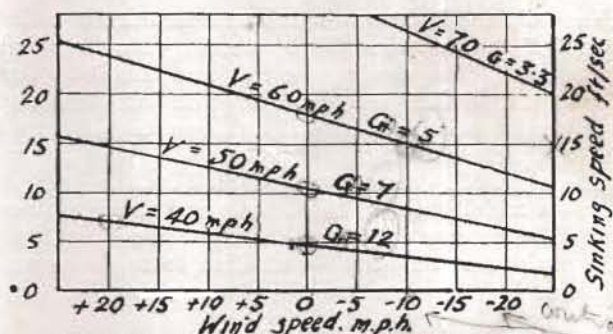 25
20
15
10
5
0
V = 70 G = 3.3
V = 60 mph G = 5
V = 50 mph G = 7
V = 40 mph G = 12
25
20
15
10
5
0
Sinking speed ft/sec
+20 +15 +10 +5 0 -5 -10 -15 -20
Wind speed. m.p.h.